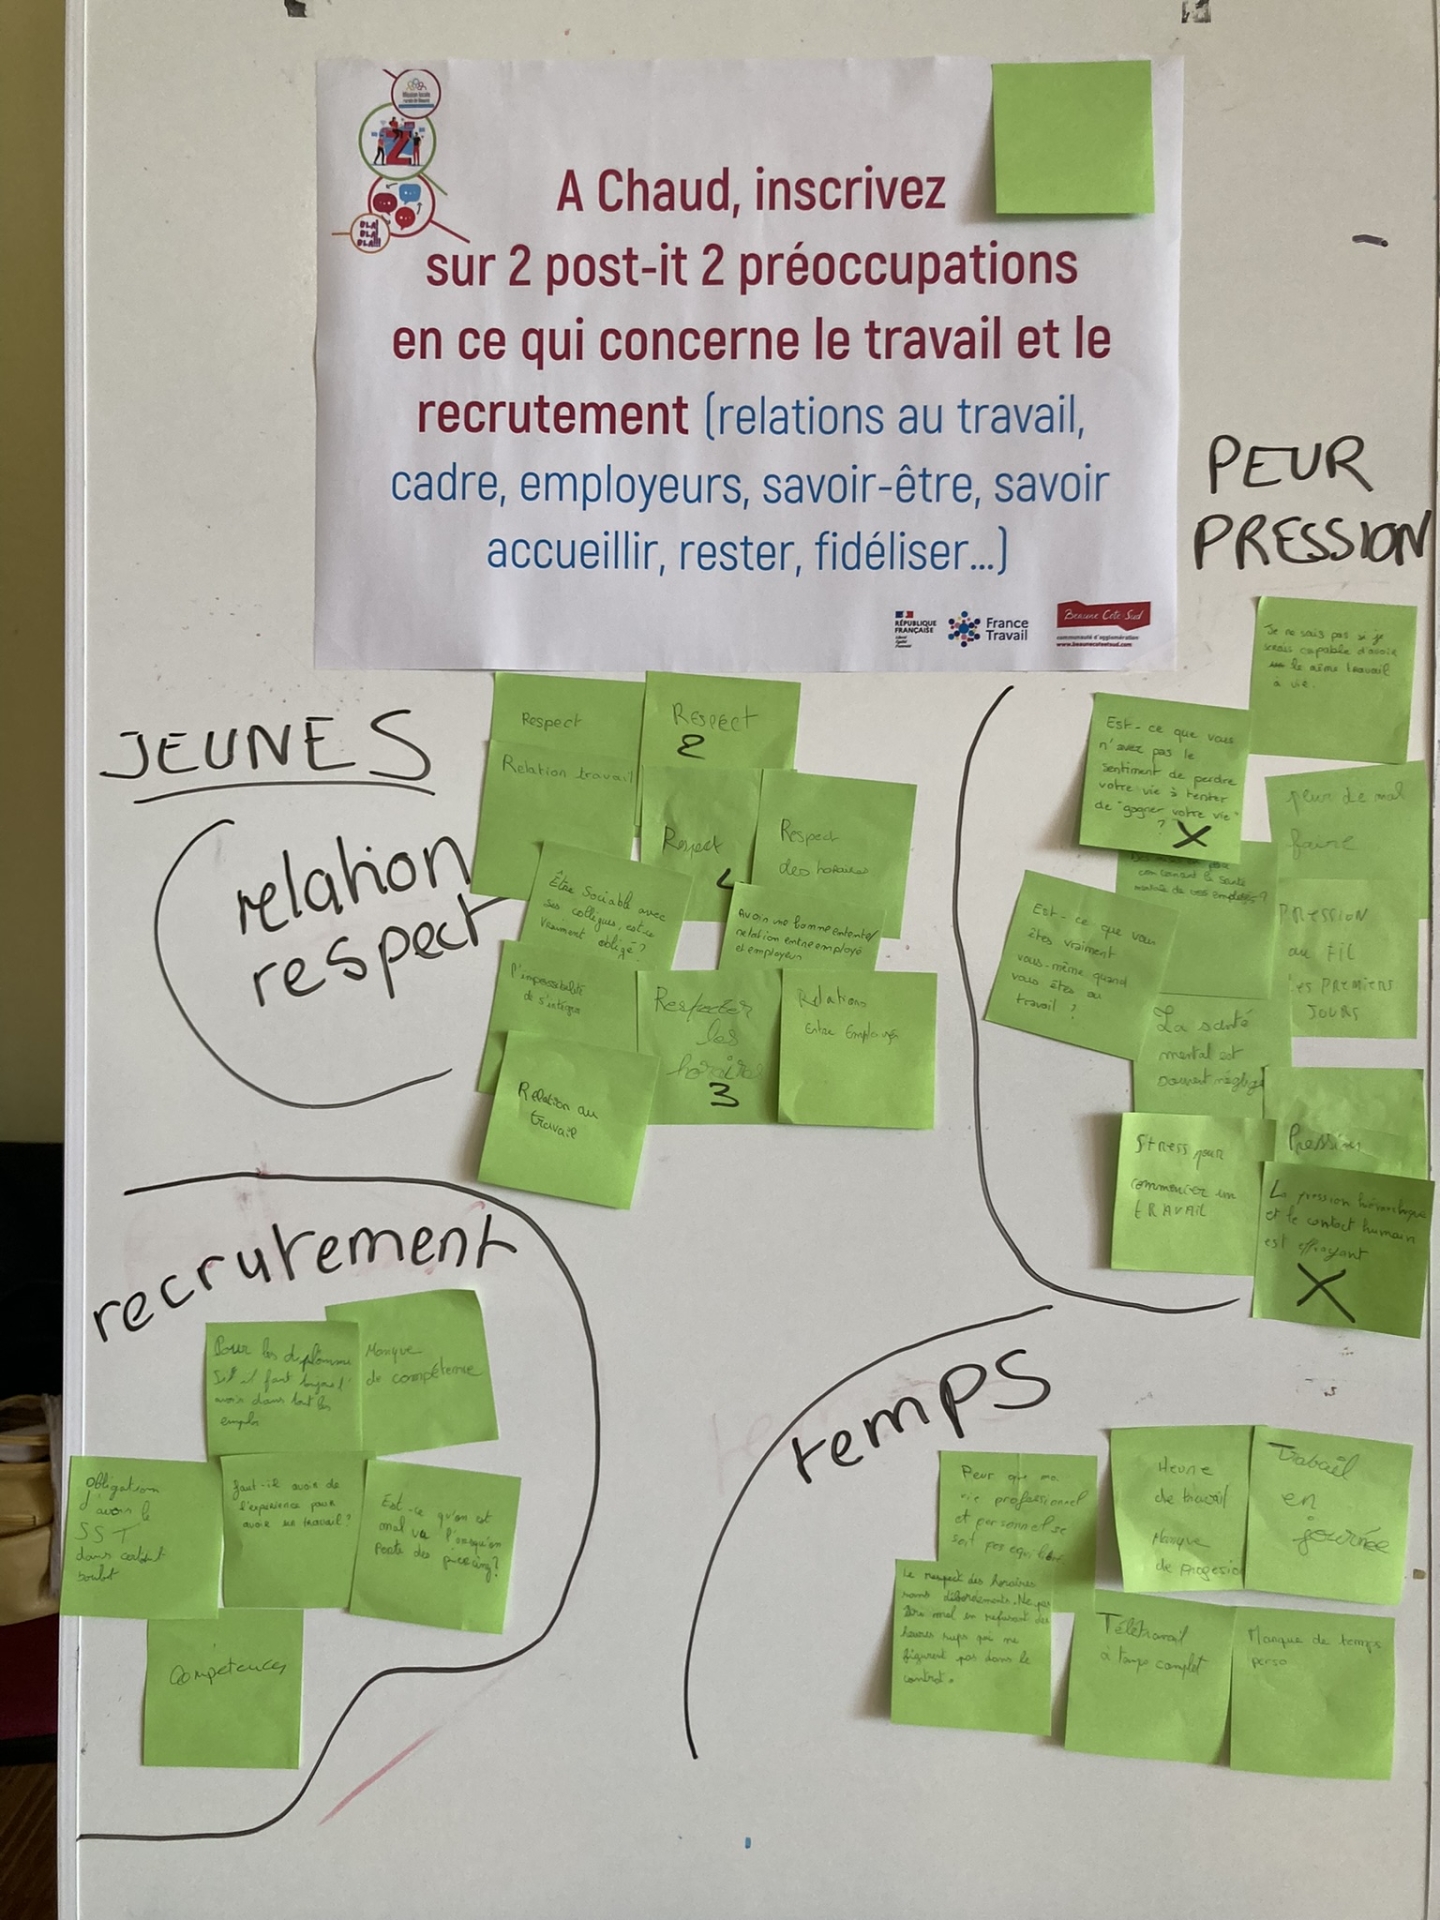 BLA!
BLA!
BLA!!!
A Chaud, inscrivez
sur 2 post-it 2 préoccupations
en ce qui concerne le travail et le
recrutement (relations au travail,
cadre, employeurs, savoir-être, savoir
accueillir, rester, fidéliser...)
RÉPUBLIQUE
FRANÇAISE
France
Travail
Beaune Côte Sud
communauté d'agglomération
www.beaunecoteetsud.com
PEUR
PRESSION
Je ne sais pas si je
serais capable d'avoir
le même travail
à vie.
Est-ce que vous
n'avez pas le
sentiment de perdre
votre vie à tenter
de "gagner votre vie"
?
X
peur de mal
faire
concernant la santé
mentale de vos employés?
Est-ce que vous
êtes vraiment
vous-même quand
vous êtes au
travail ?
PRESSION
au FIL
les PREMIERS
JOURS
La santé
mental est
souvent néglige
Stress pour
commencer un
tRAVAIL
Pression
La pression hiérarchique
et le contact humain
est effrayant
X
JEUNES
relation
respect
Respect
Respect
2
Relation travail
Respect
Respect
des horaires
Être Sociable avec
ses collègues, est-ce
vraiment obligé?
Avoir une bonne entente/
relation entre employé
et employeur
l'impossibilité
de s'intégrer
Respecter
les
horaires
3
Relations
Entre Employés
Relation au
travail
recrutement
Pour les diplômes
avoir dans tout les
emploi
Manque
de compétence
Obligation
d'avoir le
SST
dans
faut-il avoir de
l'expérience pour
avoir un travail?
Est-ce qu'on est
mal vu lorsqu'on
porte des piercing?
Compétences
temps
Peur que ma
vie professionnel
et personnel se
soit pas equilibré
Heure
de travail
Manque
de
Travail
en
journée
Le respect des horaires
sans débordements. Ne pas
être mal en refusant des
heures sups qui ne
figurent pas dans le
contrat.
Télétravail
à temps complet
Manque de temps
perso